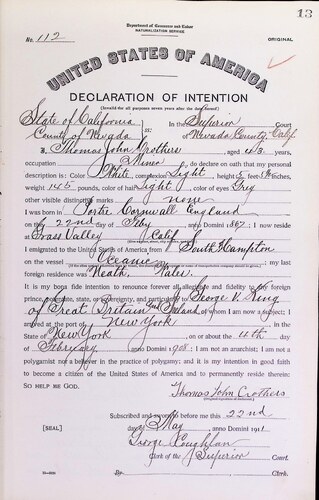 13
Department of Commerce and Labor
NATURALIZATION SERVICE
No. 112
ORIGINAL
UNITED STATES OF AMERICA
DECLARATION OF INTENTION
(Invalid for all purposes seven years after the date hereof)
State of California
In the Superior Court
County of Nevada
ss:
of Nevada County Calif
I, Thomas John Crothers, aged 43 years,
occupation Miner, do declare on oath that my personal
description is: Color White, complexion Light, height 5 feet inches,
weight 145 pounds, color of hair Light, color of eyes Grey
other visible distinctive marks none
I was born in Cornwall England
on the 22nd day of Feby, anno Domini 1867; I now reside
at Grass Valley Calif
I emigrated to the United States of America from South Hampton
on the vessel Oceanic; my last
foreign residence was Neath, Wales.
It is my bona fide intention to renounce forever all allegiance and fidelity to any foreign
prince, potentate, state, or sovereignty, and particularly to George V. King
of Great Britain and Ireland, of whom I am now a subject; I
arrived at the port of New York, in the
State of New York, on or about the 4th day
of February, anno Domini 1908; I am not an anarchist; I am not a
polygamist nor a believer in the practice of polygamy; and it is my intention in good faith
to become a citizen of the United States of America and to permanently reside therein:
SO HELP ME GOD.
Thomas John Crothers
Subscribed and sworn to before me this 22nd
[SEAL]
day of May, anno Domini 1911
George Coughlan
Clerk of the Superior Court.
By Clerk.